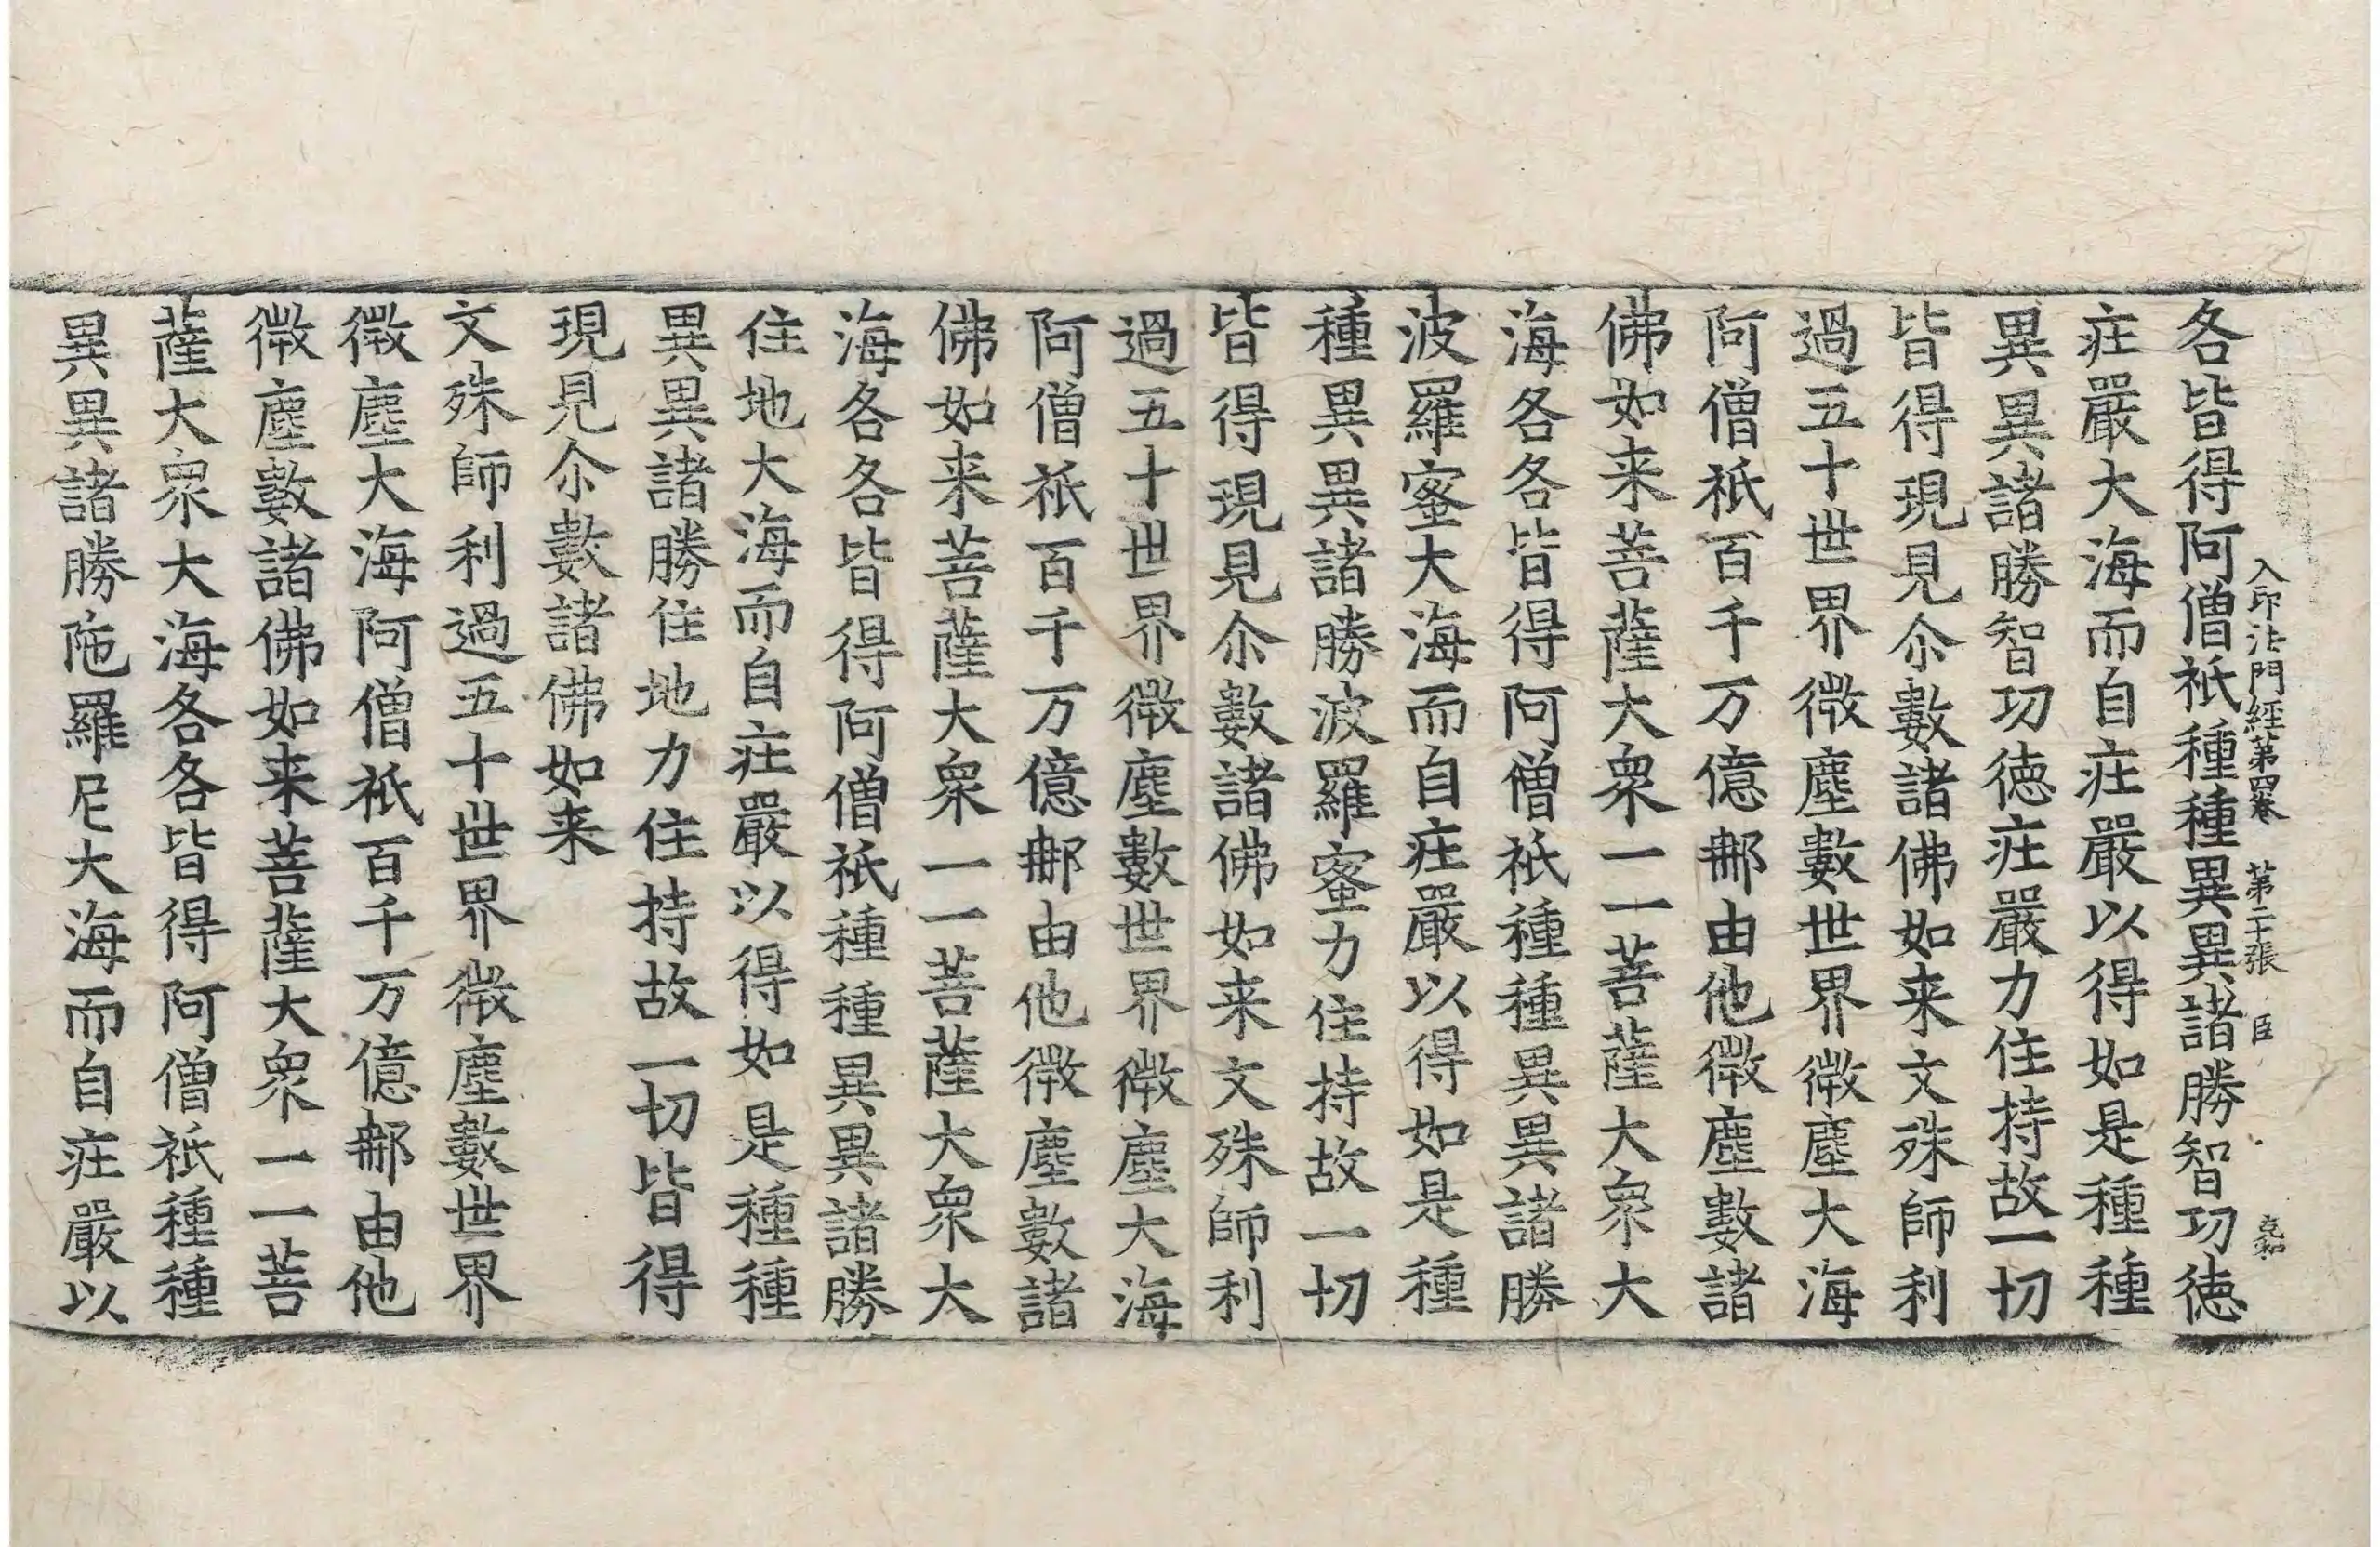 入印法門經第四卷　第二十張　臣
各皆得阿僧祇種種異異諸勝智功徳
疘嚴大海而自疘嚴以得如是種種
異異諸勝智功徳疘嚴力住持故一切
皆得現見尒數諸佛如来文殊師利
過五十世界微塵數世界微塵大海
阿僧祇百千万億𨚗由他微塵數諸
佛如来菩薩大衆一一菩薩大衆大
海各各皆得阿僧祇種種異異諸勝
波羅蜜大海而自疘嚴以得如是種
種異異諸勝波羅蜜力住持故一切
皆得現見尒數諸佛如来文殊師利
過五十世界微塵數世界微塵大海
阿僧祇百千万億𨚗由他微塵數諸
佛如来菩薩大衆一一菩薩大衆大
海各各皆得阿僧祇種種異異諸勝
住地大海而自疘嚴以得如是種種
異異諸勝住地力住持故一切皆得
現見尒數諸佛如来
文殊師利過五十世界微塵數世界
微塵大海阿僧祇百千万億𨚗由他
微塵數諸佛如来菩薩大衆一一菩
薩大衆大海各各皆得阿僧祇種種
異異諸勝陁羅尼大海而自疘嚴以